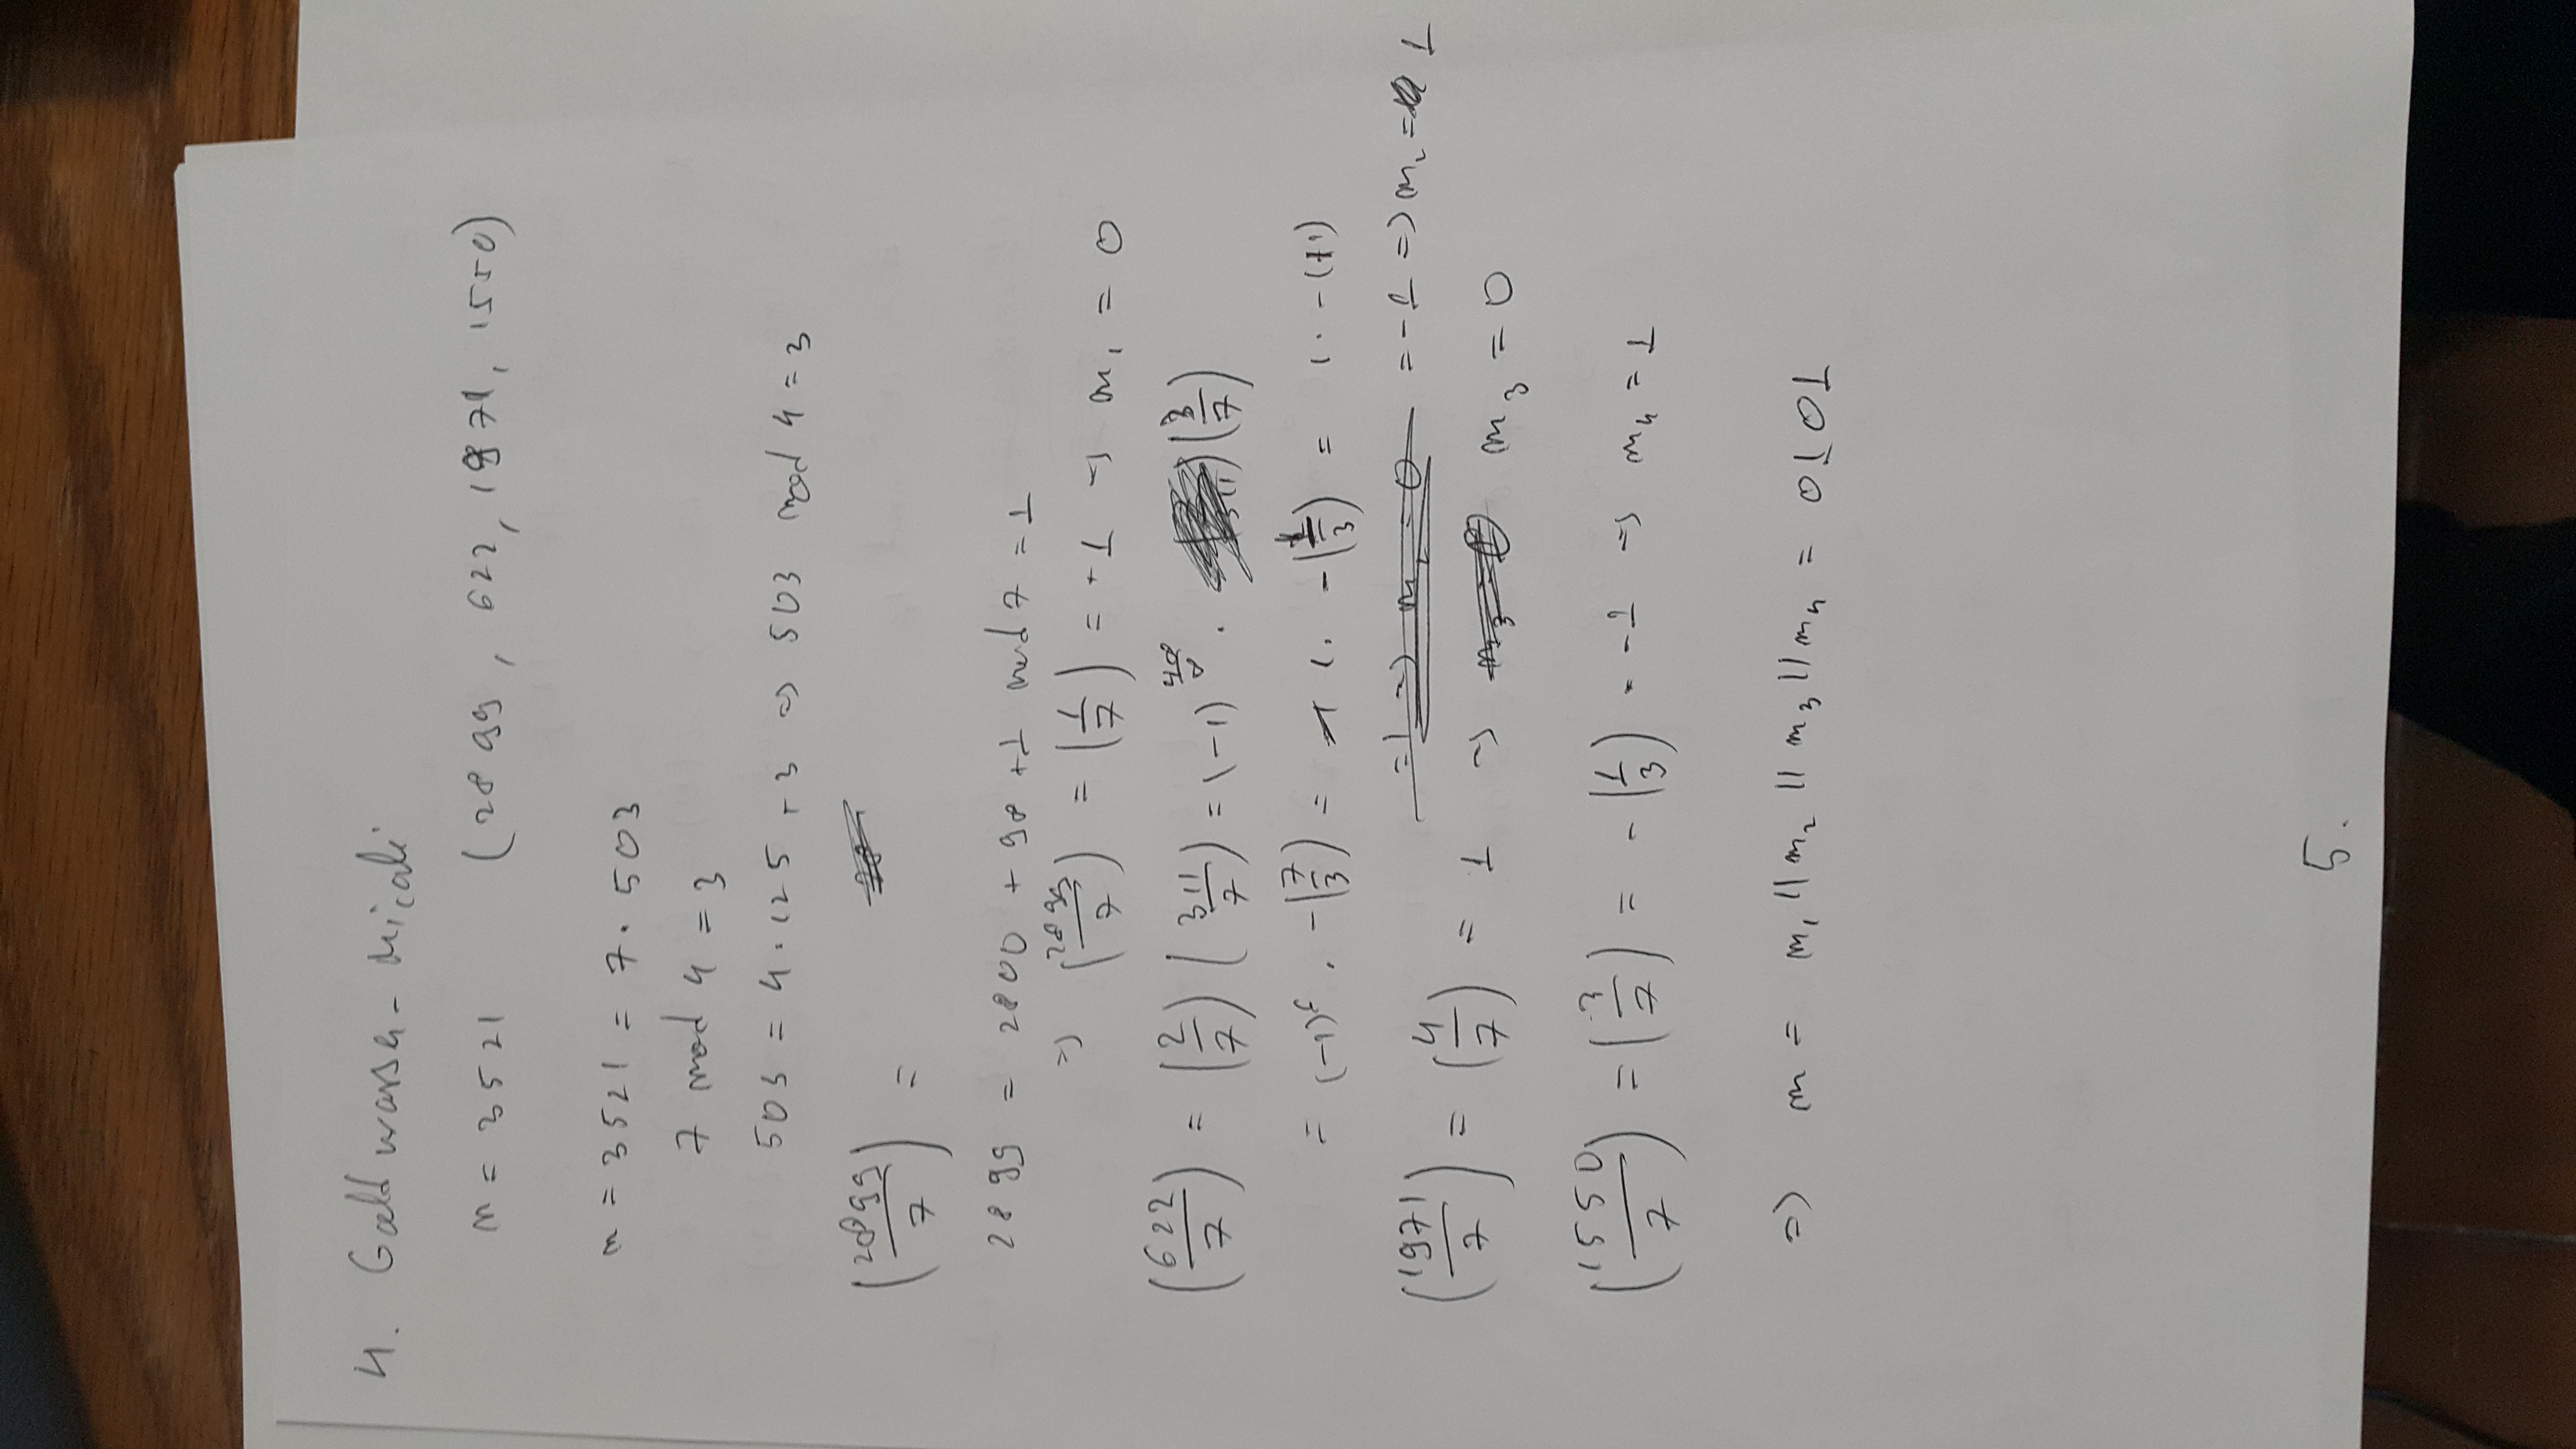 4. Goldwasser-Micali
n = 3521 (2899, 622, 1971, 1550)
n = 3521 = 7 · 503
7 mod 4 = 3
503 = 4 · 125 + 3 => 503 mod 4 = 3
(2899/7) =
2899 = 2800 + 98 + 1 mod 7 = 1
=> (2899/7) = (1/7) = +1 => m₁ = 0
(622/7) = (2/7) (311/7) = (-1)^(48/8) · (3/7)
= (-1)⁶ · -(7/3) = 1 · -(1/3) = 1 · -(+1)
= -1 => m₂ = 1
(1971/7) = (4/7) = 1 => m₃ = 0
(1550/7) = (3/7) = -(1/3) = -1 => m₄ = 1
=> m = m₁ || m₂ || m₃ || m₄ = 0101
5.